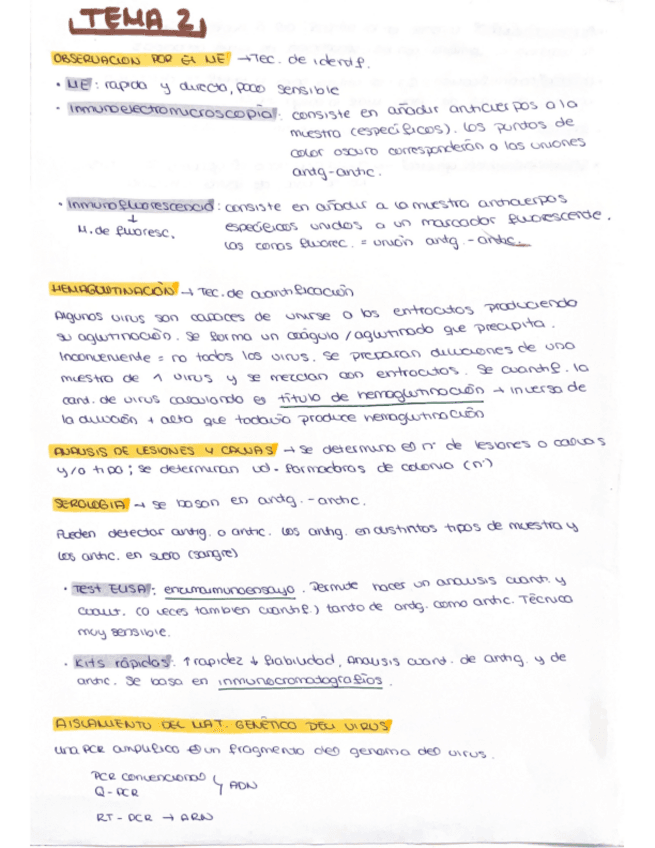 TEMA 2
OBSERVACION POR El ME → Tec. de identif.
· ME: rapida y directa, poco sensible
· Inmunoelectromicroscopía: consiste en añadir anticuerpos a la
muestra (específicos). Los puntos de
color oscuro corresponderán a las uniones
antg-antic.
· Inmunofluorescencia: consiste en añadir a la muestra anticuerpos
↓
M. de fluoresc.
específicos unidos a un marcador fluorescente.
Las zonas fluorec. = unión antg.-antic.
HEMAGLUTINACIÓN → Tec. de cuantificación
Algunos virus son capaces de unirse a los eritrocitos produciendo
su aglutinación. Se forma un coágulo/aglutinado que precipita.
Inconveniente = no todos los virus. Se preparan diluciones de una
muestra de 1 virus y se mezclan con eritrocitos. Se cuantif. la
cant. de virus calculando el título de hemaglutinación → inverso de
la dilución + alta que todavía produce hemaglutinación
ANALISIS DE LESIONES Y CALVAS → Se determina el nº de lesiones o calvas
y/o tipo; se determinan ud. formadoras de colonia (nº)
SEROLOGIA → se basan en antg.-antic.
Pueden detectar antig. o antic. Los antig. en distintos tipos de muestra y
los antic. en suero (sangre)
· Test ELISA: enzimoinmunoensayo. Permite hacer un analisis cuant. y
cualit. (a veces tambien cuantif.) tanto de antg. como antic. Técnica
muy sensible.
· Kits rápidos: ↑rapidez ↓ fiabilidad. Analisis cuant. de antig. y de
antic. Se basa en inmunocromatografías.
AISLAMIENTO DEL MAT. GENÉTICO DEL VIRUS
Una PCR amplifica un fragmento del genoma del virus.
PCR convencional
Q-PCR
ADN
RT-PCR → ARN